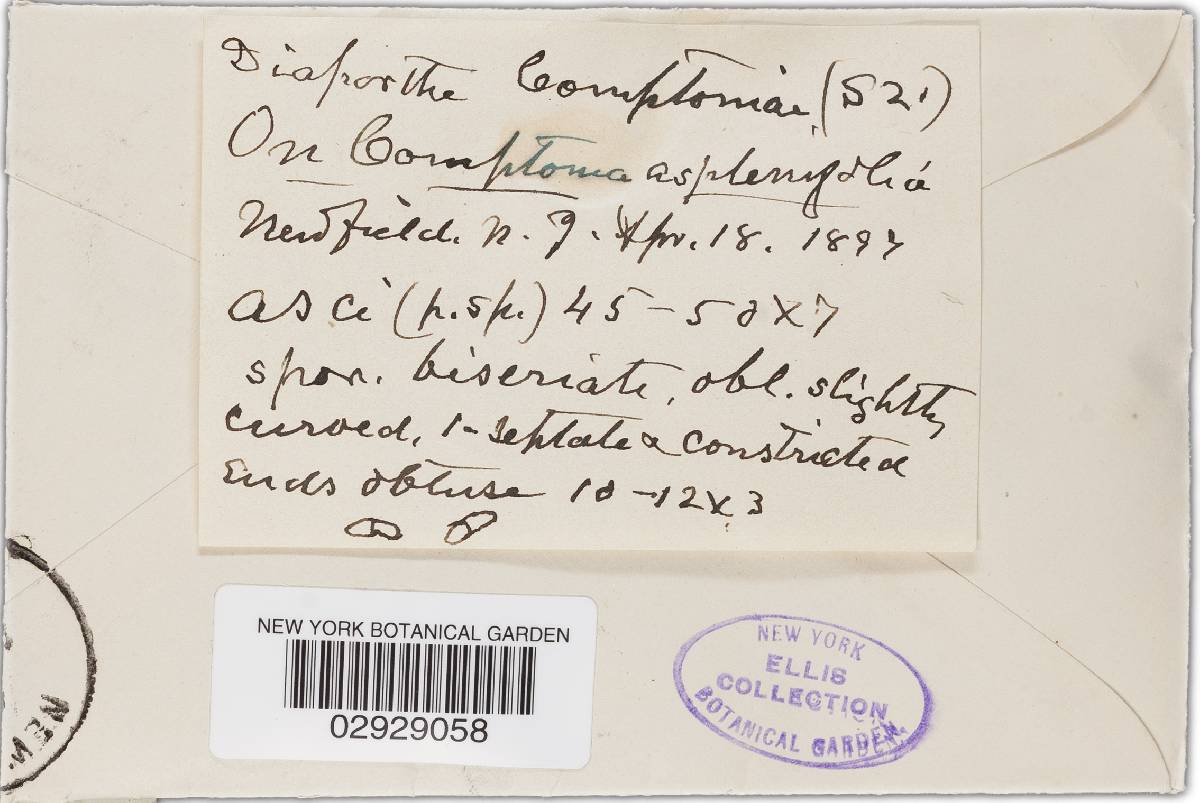 Diaporthe Comptoniae (S21)
On Comptonia asplenifolia
Newfield. N. J. Apr. 18. 1897
asci (p.sp.) 45-50x7
spor. biseriate, obl. slightly
curved, 1-septate & constricted
Ends obtuse 10-12x3
NEW YORK BOTANICAL GARDEN
02929058
NEW YORK
ELLIS
COLLECTION
BOTANICAL GARDEN.
NEW